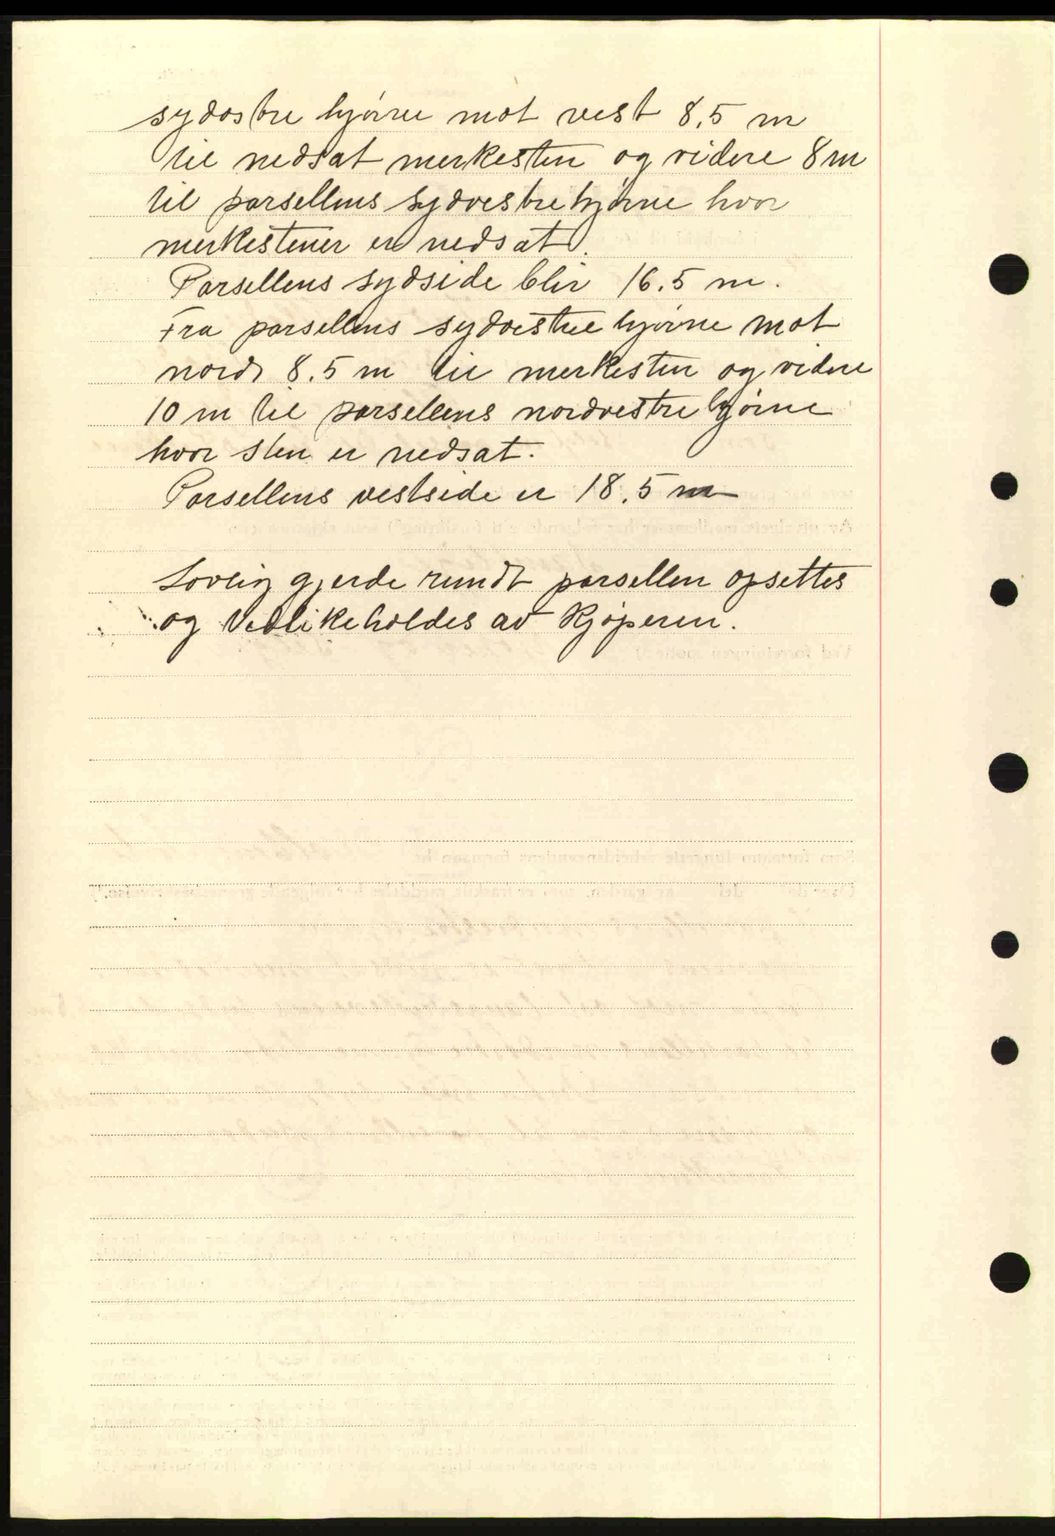 sydostre hjørne mot vest 8,5 m
til nedsat merkesten og videre 8 m
til parsellens sydvestre hjørne hvor
merkestener er nedsat.
Parsellens sydside blir 16.5 m.
Fra parsellens sydvestre hjørne mot
nord 8.5 m til merkesten og videre
10 m til parsellens nordvestre hjørne
hvor sten er nedsat.
Parsellens vestside er 18,5 m
Lovlig gjerde rundt parsellen opsettes
og vedlikeholdes av kjøperen.